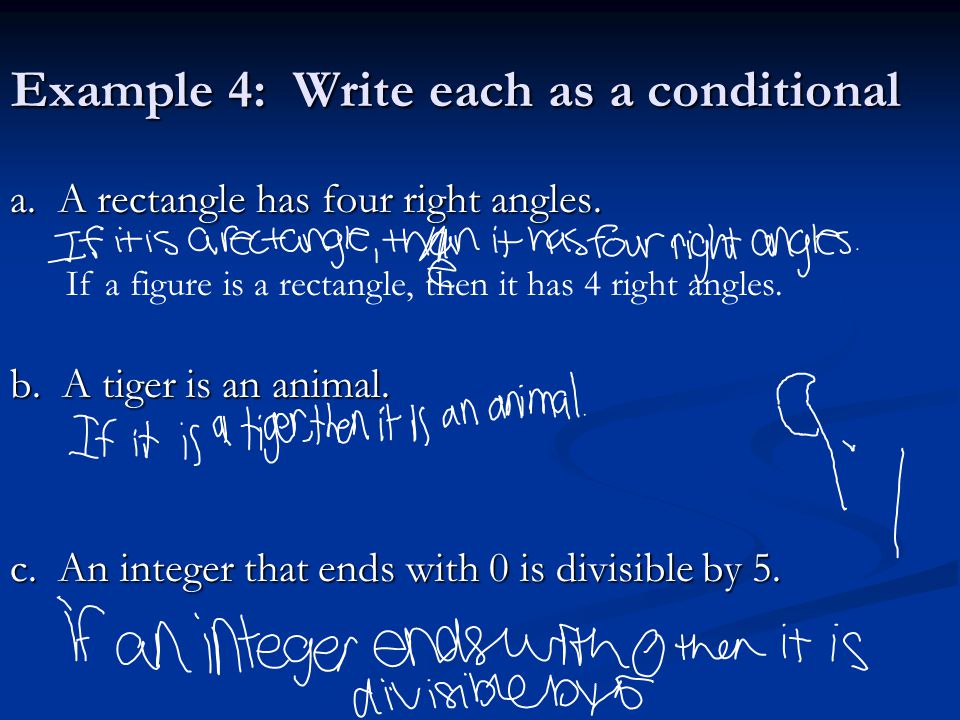 Example 4: Write each as a conditional
a. A rectangle has four right angles.
If it is a rectangle, then it has four right angles.
If a figure is a rectangle, then it has 4 right angles.
b. A tiger is an animal.
If it is a tiger, then it is an animal.
c. An integer that ends with 0 is divisible by 5.
If an integer ends with 0 then it is
divisible by 5